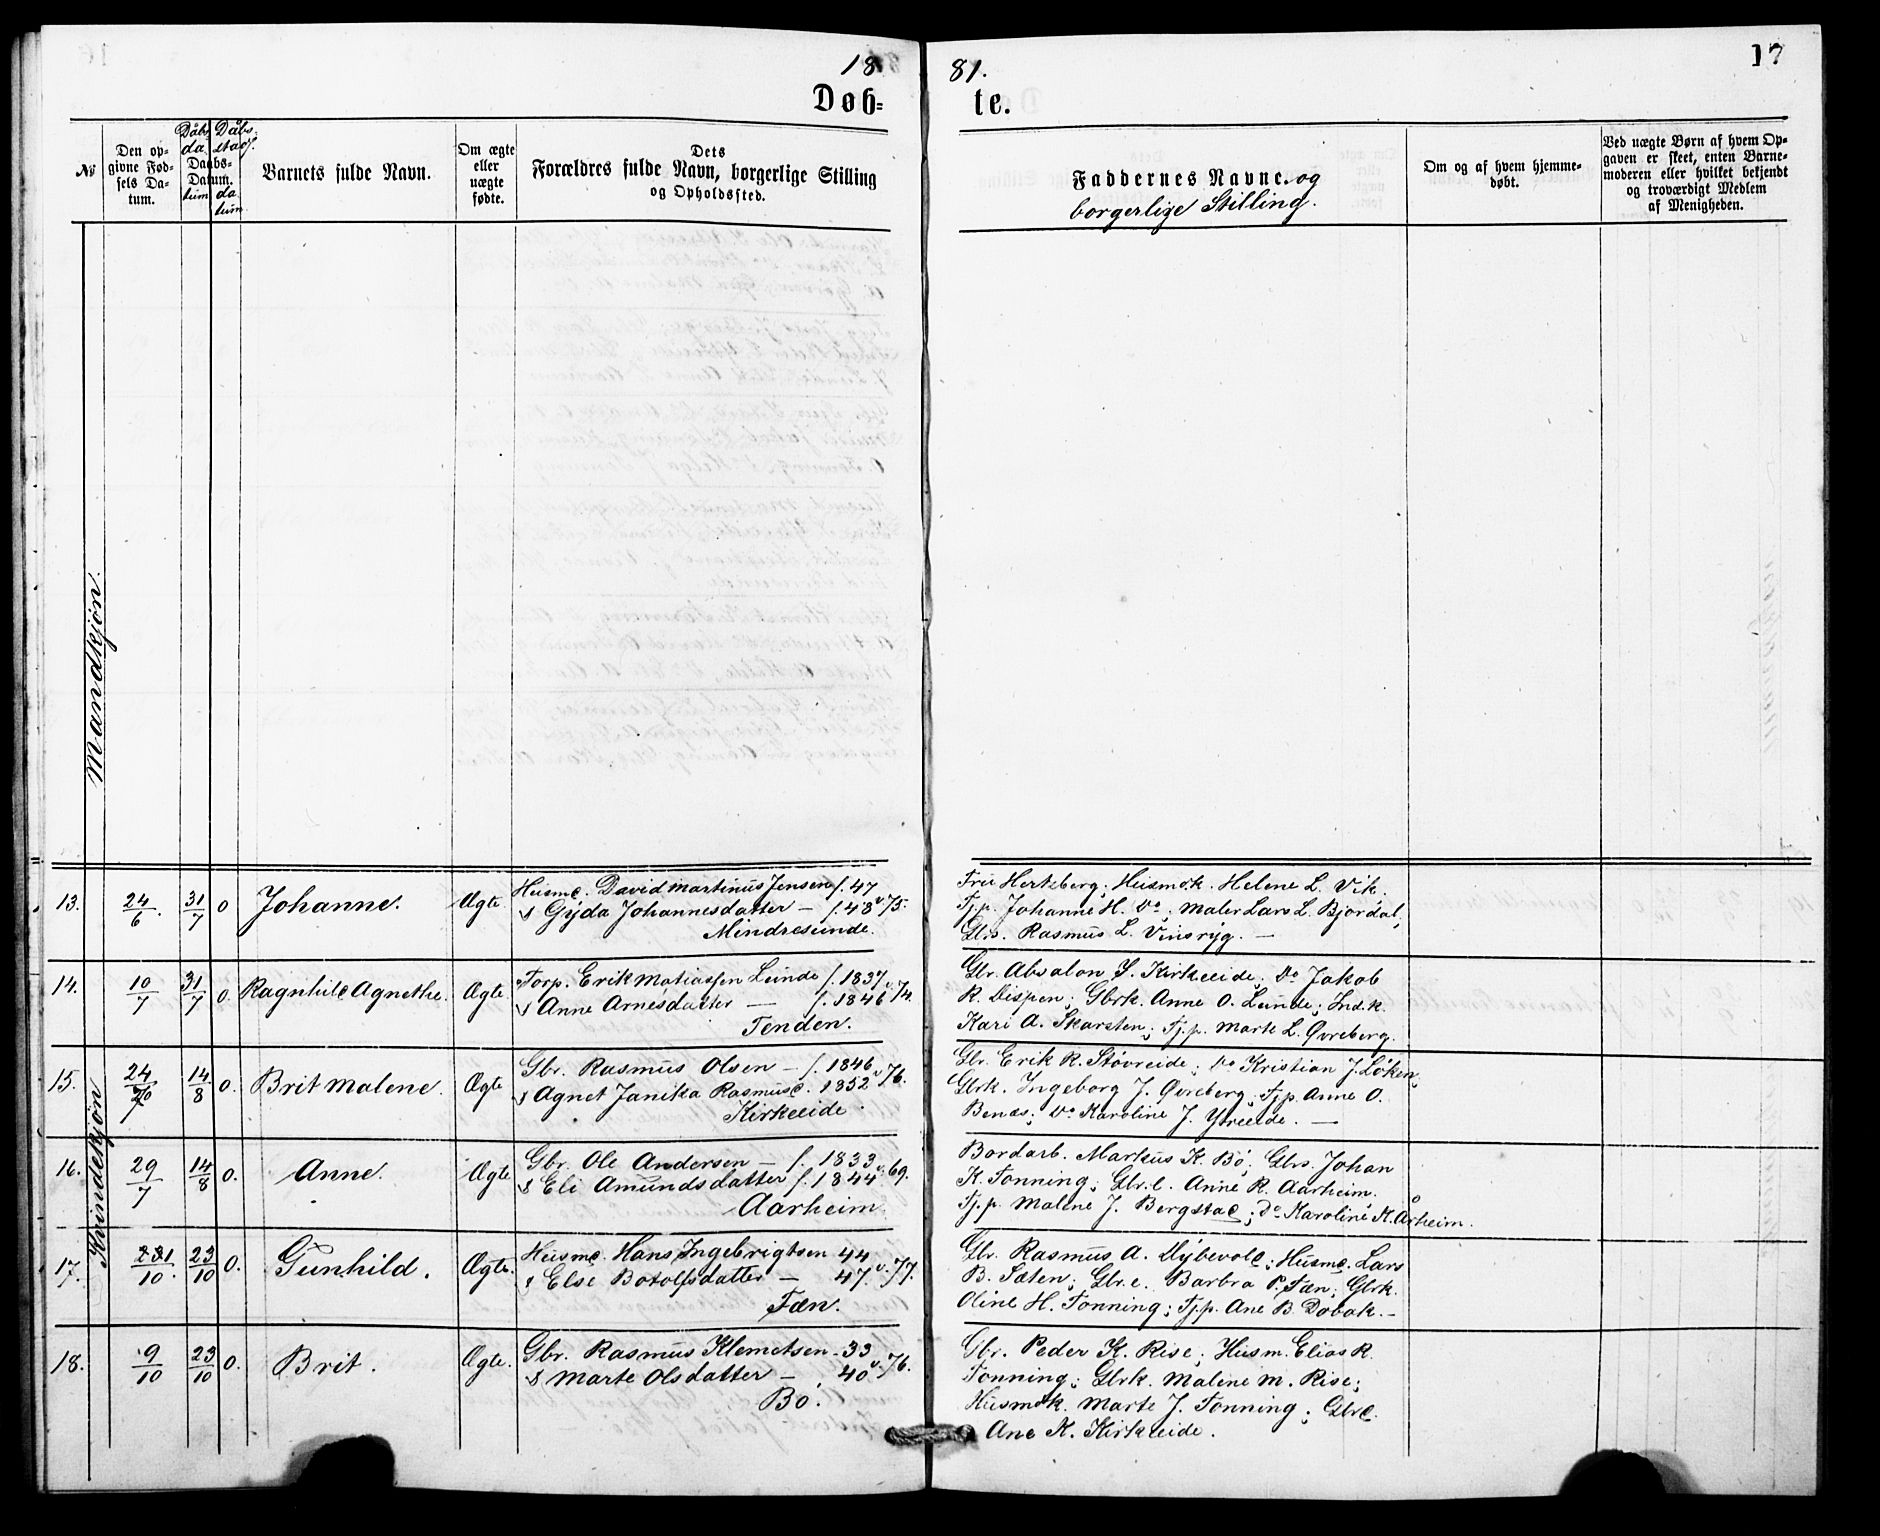 18 81. 17
Døb= te.
No
Den op-
givne Fød-
sels Da-
tum.
Dåbs
da
Daabs-
Datum.
tum
Dåbs-
stad
da
tum.
Barnets fulde Navn.
Om ægte
eller
uægte
fødte.
Dets
Forældres fulde Navn, borgerlige Stilling
og Opholdssted.
Faddernes Navne og
borgerlige Stilling.
Om og af hvem hjemme-
døbt.
Ved uægte Børn af hvem Op-
gaven er skeet, enten Barne-
moderen eller hvilket bekjendt
og troværdigt Medlem
af Menigheden.
Mandkjøn.
Kvindekjøn
13. 24/6. 31/7 O Johanne. Ægte
Husmd. David Martinus Jensen f. 47
& Gyda Johannesdatter — f. 48 v. 75.
Mindresunde.
Fru Hertzberg; Husmdk. Helene L. Vik.
Tj.p. Johanne H. Do; Maler Lars L. Bjordal,
Gbrs. Rasmus L. Vinsryg. —
14. 10/7 31/7 O. Ragnhild Agnethe. Ægte
Forp. Erik Matiassen Lunde f. 1837
& Anne Arnesdatter — f. 1846 v. 74.
Tenden.
Gbr. Absalon S. Kirkeeide; Do Jakob
R. Vispen; Gbrk. Anne O. Lunde; Ind.k.
Kari A. Skarsten; Tj.p. Marte L. Øvreberg.
15. 24/7 14/8 O. Brit Malene. Ægte
Gbr. Rasmus Olsen — f. 1846
& Agnet Janika Rasmusd. 1852 v. 76.
Kirkeeide.
Gbr. Erik R. Støvreide; Do Kristian J. Løken;
Gbrk. Ingeborg J. Øvreberg; Tj.p. Anne O.
Benæs; Do Karoline J. Ytreeide. —
16. 29/7 14/8 O. Anne. Ægte
Gbr. Ole Andersen — f. 1833
& Eli Amundsdatter f. 1844 v. 69.
Aarheim.
Bordarb. Markus K. Bø; Gbrs. Johan
K. Tonning; Gbr.d. Anne R. Aarheim.
Tj.p. Malene J. Bergstad; Do Karoline K. Årheim.
17. 1/10. 23/10 O. Gunhild. Ægte.
Husmd. Hans Ingebrigtsen 44
& Else Botolfsdatter — 47 v. 77.
Fæn.
Gbr. Rasmus A. Myhevold; Husmd. Lars
B. Sæten; Gbr.e. Barbra P. Fæn; Gbrk.
Oline H. Tonning; Tj.p. Ane B. Dobak. —
18. 9/10 23/10 O. Brit. Ægte.
Gbr. Rasmus Klemetsen — 33
& Marte Olsdatter — 40 v. 76.
Bø.
Gbr. Peder K. Rise; Husm. Elias R.
Tonning; Gbrk. Malene M. Rise;
Husmdk. Marte J. Tonning; Gbrd.
Ane K. Kirkeeide.